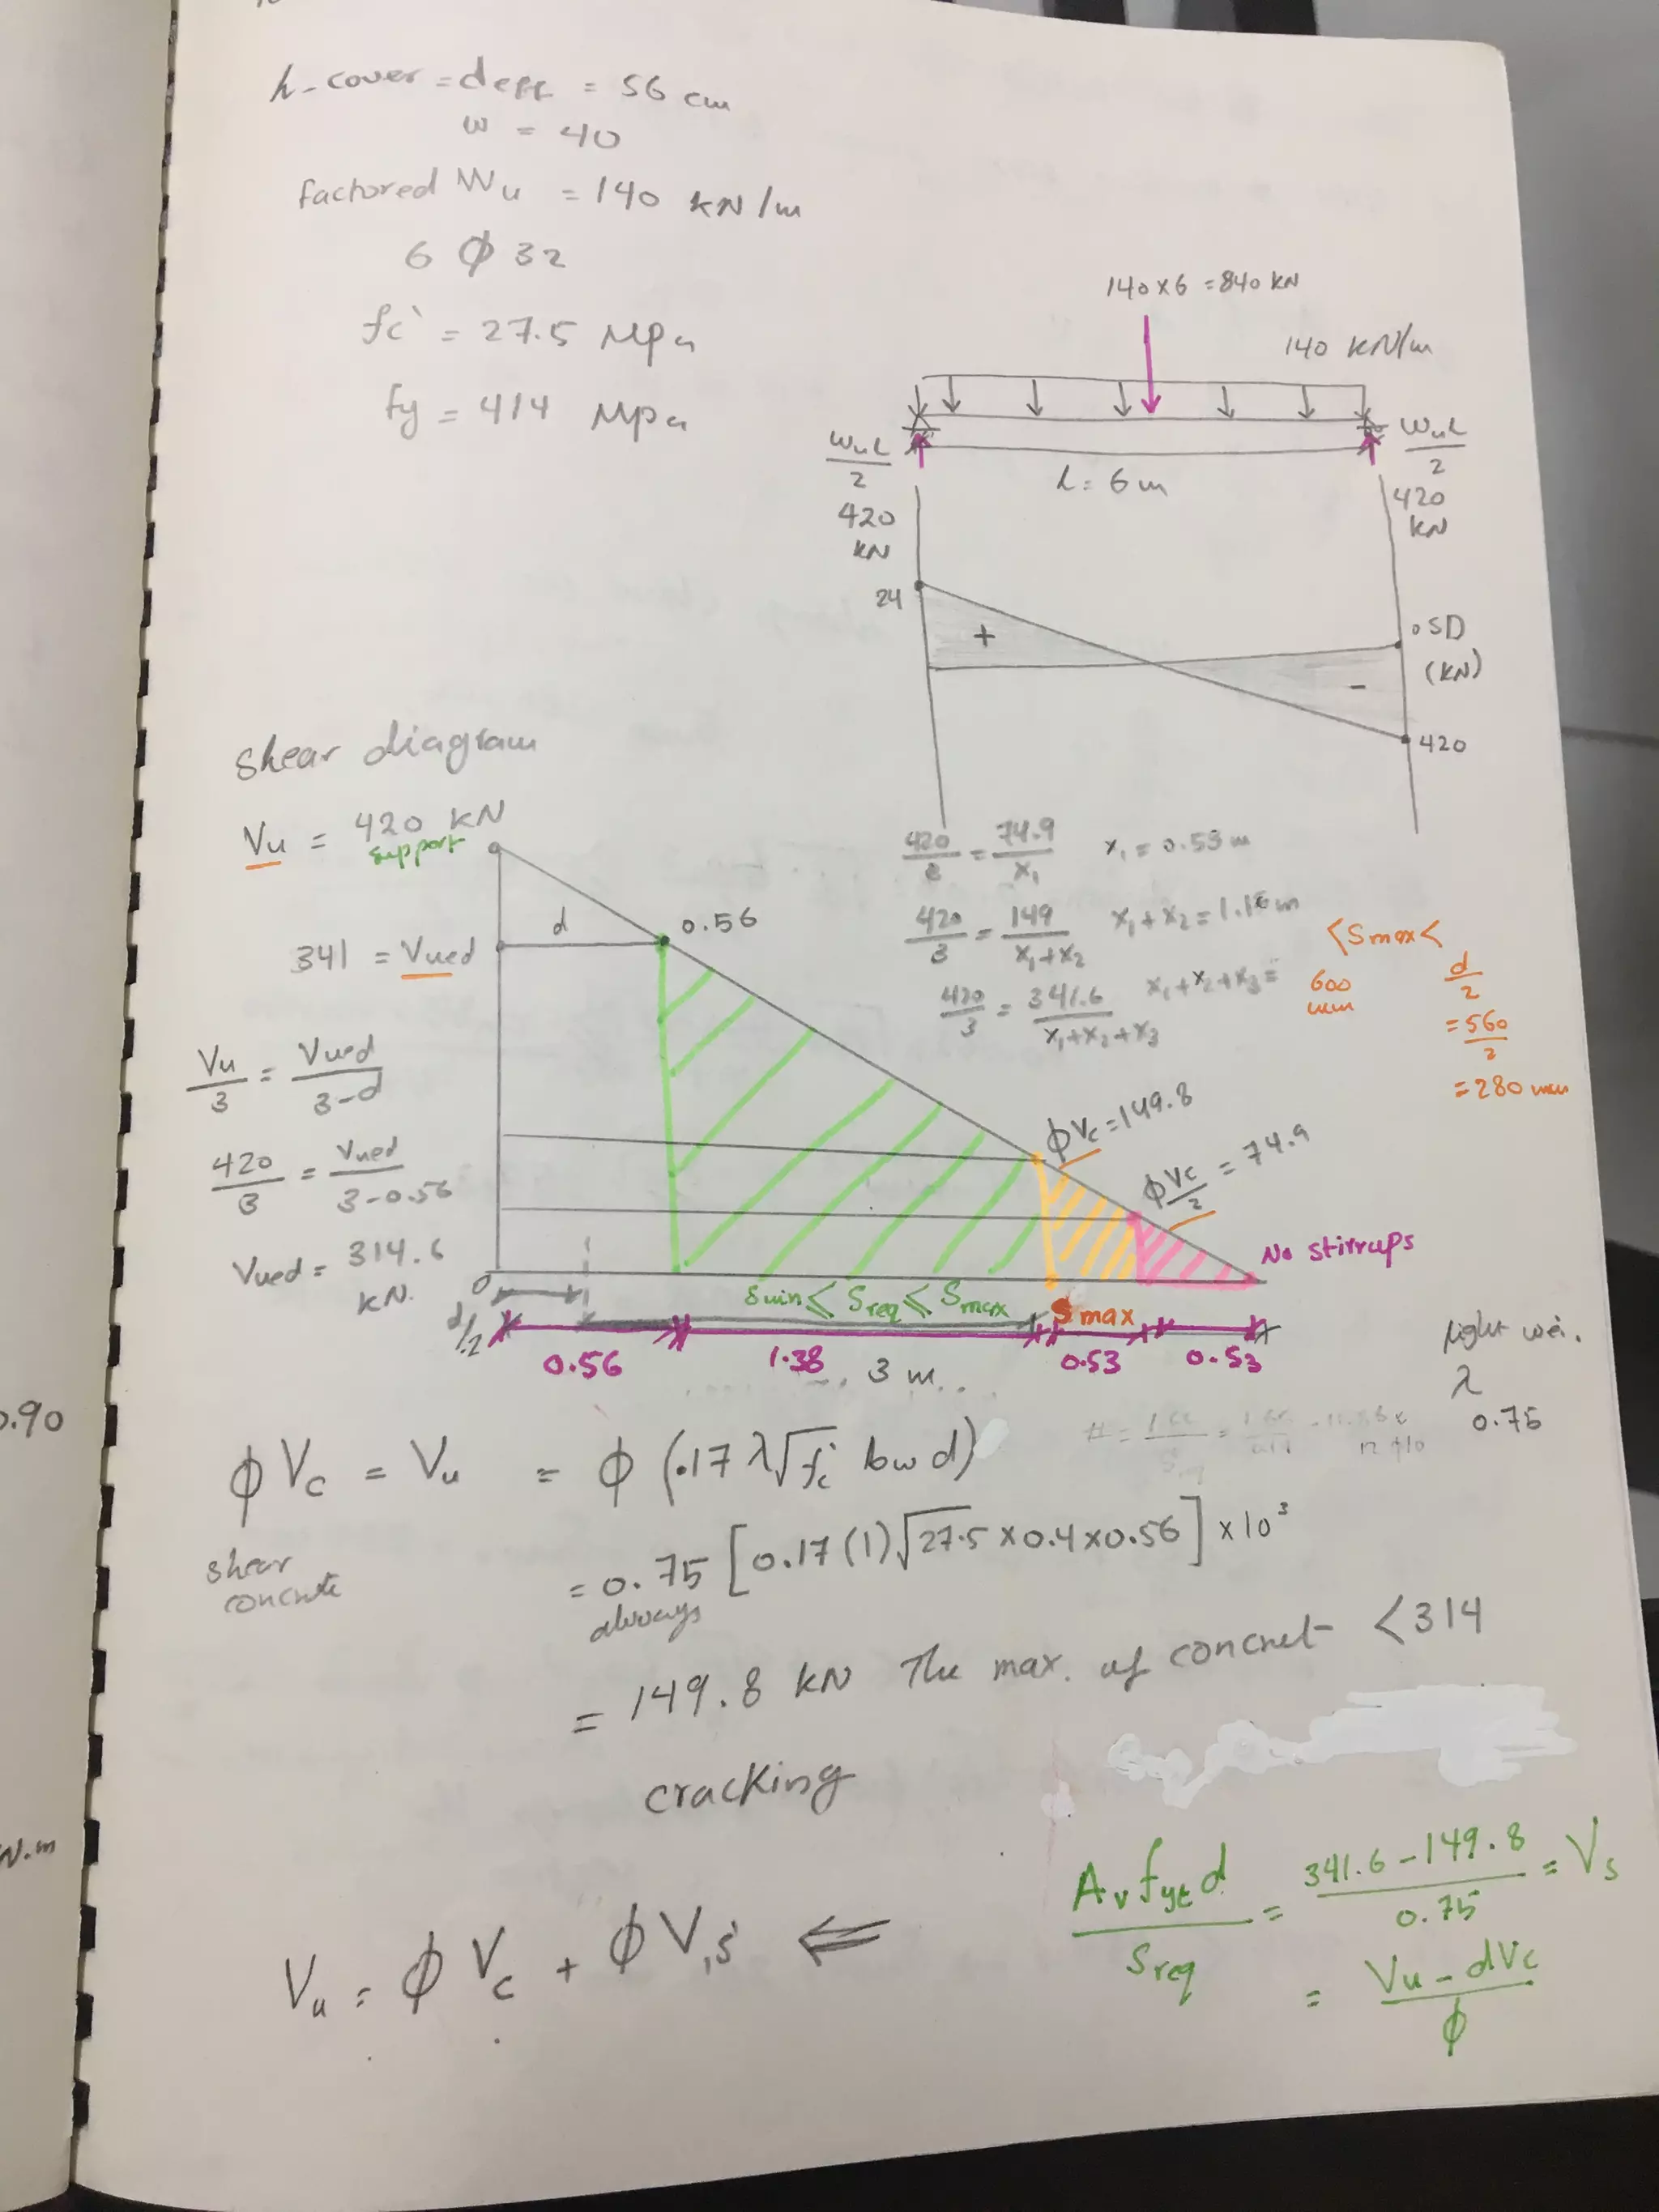 h - cover = deff = 56 cm
w = 40
factored Wu = 140 kN/m
6 Ø 32
fc' = 27.5 MPa
fy = 414 MPa
140 x 6 = 840 kN
140 kN/m
WuL/2
WuL/2
L = 6 m
420 kN
420 kN
24
+
SD
(kN)
-
420
shear diagram
Vu = 420 kN
support
420/3 = 74.9/x1 x1 = 0.53 m
d
0.56
420/3 = 149/x1+x2 x1 + x2 = 1.16 m
341 = Vued
420/3 = 341.6/x1+x2+x3 x1+x2+x3 =
< Smax <
600 mm
d/2
= 560/2
= 280 mm
Vu/3 = Vued/3-d
420/3 = Vued/3-0.56
Vued = 314.6 kN.
ϕVc = 149.8
ϕVc/2 = 74.9
No stirrups
0
d/2
Smin ≤ Sreq ≤ Smax
Smax
0.56
1.38
3 m
0.53
0.53
light wei.
λ
0.75
0.90
ϕVc = Vu = ϕ (.17 λ √fc' bw d)
shear concrete
= 0.75 [0.17 (1) √27.5 x 0.4 x 0.56] x 10³
always
= 149.8 kN The max. of concret < 314
cracking
N.m
Av fyt d/Sreq = 341.6 - 149.8/0.75 = Vs
Vu = ϕVc + ϕVs ⇐
= Vu - dVc/ϕ